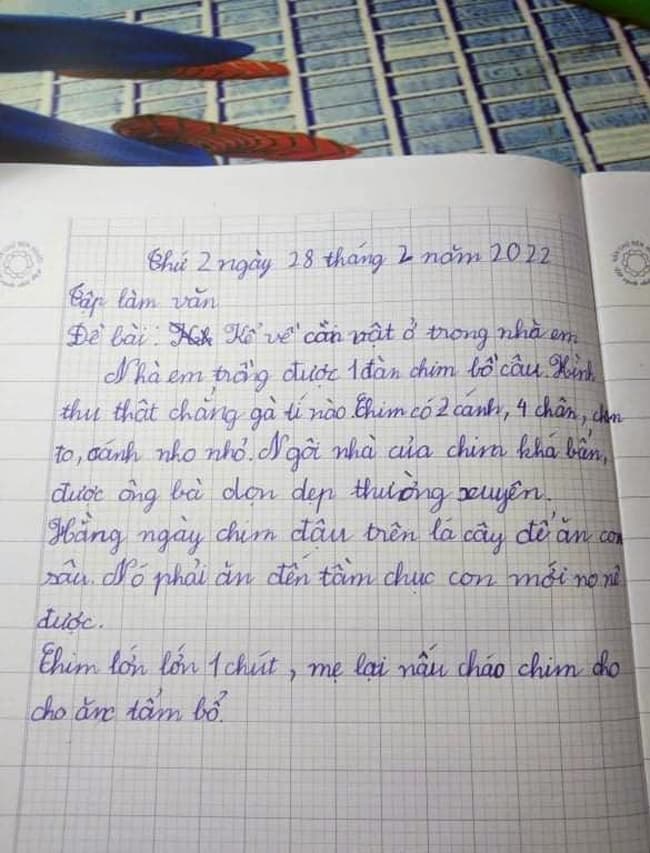 Thứ 2 ngày 28 tháng 2 năm 2022
Tập làm văn
Đề bài: Kể về cằn vật ở trong nhà em
Nhà em trồng được 1 đàn chim bồ câu. Hình
thu thật chẳng gà tí nào. Chim có 2 cánh, 4 chân, chân
to, cánh nho nhỏ. Ngôi nhà của chim khá bẩn,
được ông bà dọn dẹp thường xuyên.
Hằng ngày chim đậu trên lá cây để ăn con
sâu. Nó phải ăn đến tầm chục con mới no nê
được.
Chim lớn lớn 1 chút, mẹ lại nấu cháo chim cho
cho ăn tẩm bổ.